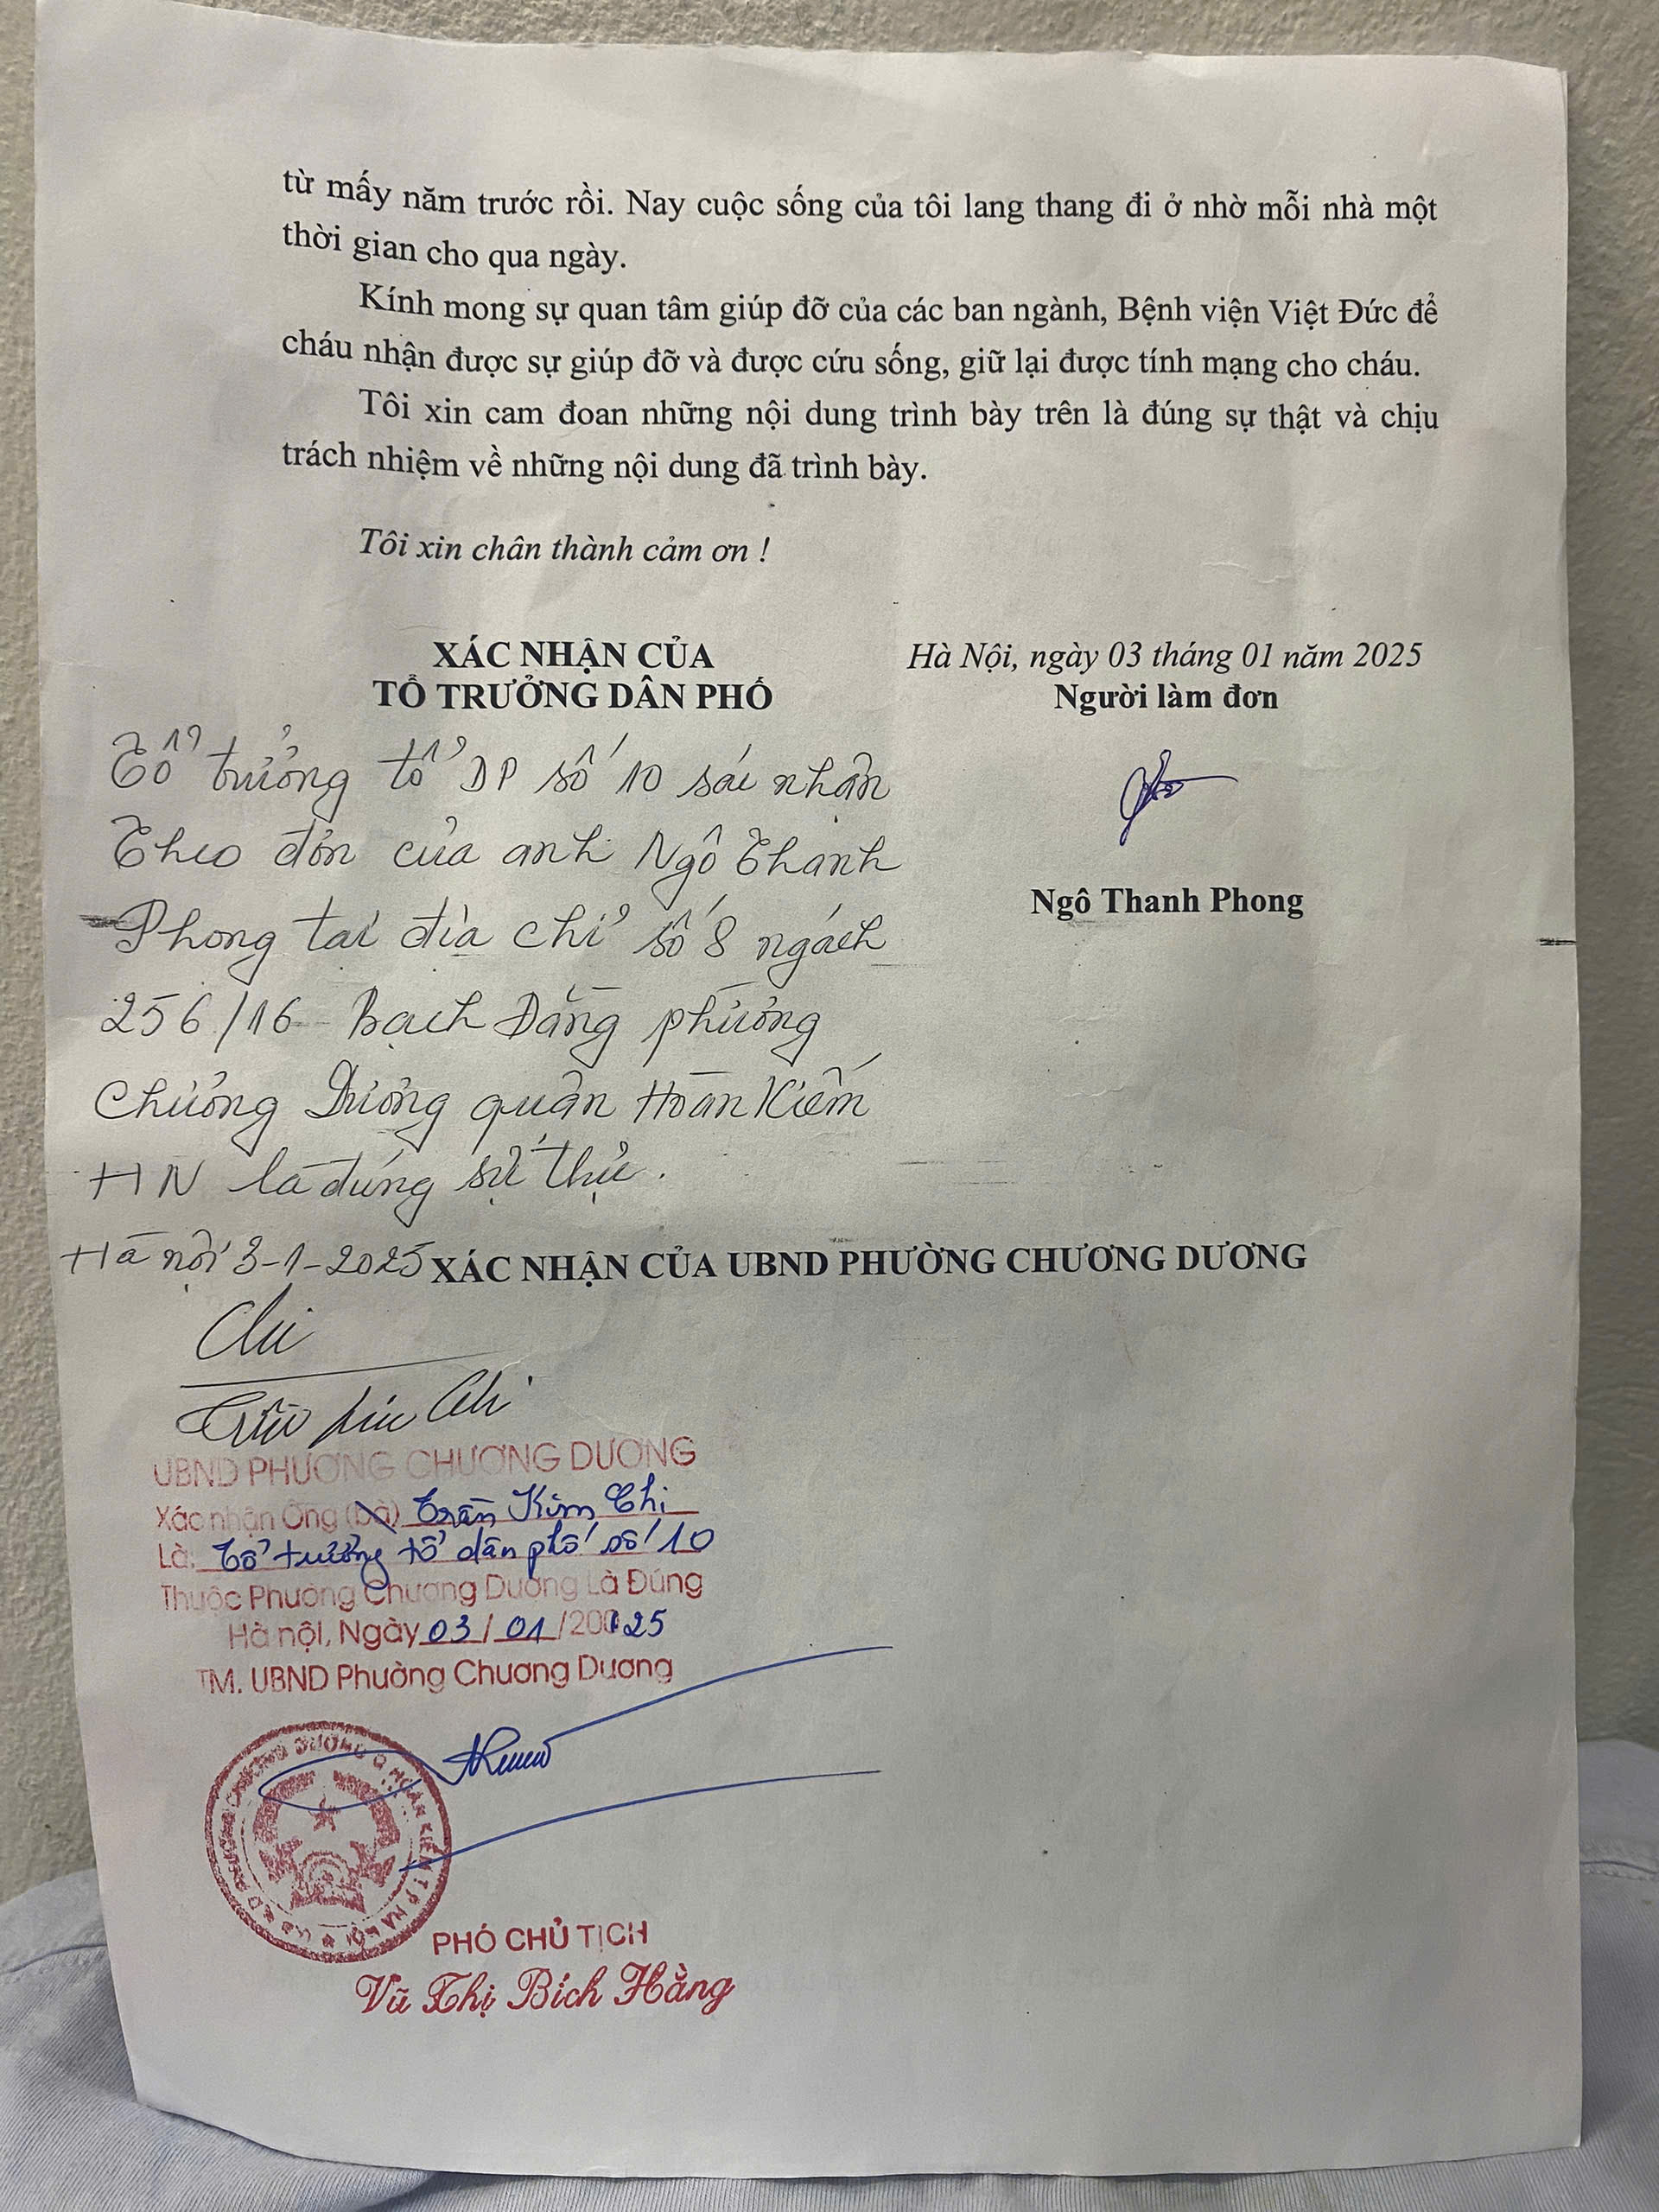 từ mấy năm trước rồi. Nay cuộc sống của tôi lang thang đi ở nhờ mỗi nhà một
thời gian cho qua ngày.
Kính mong sự quan tâm giúp đỡ của các ban ngành, Bệnh viện Việt Đức để
cháu nhận được sự giúp đỡ và được cứu sống, giữ lại được tính mạng cho cháu.
Tôi xin cam đoan những nội dung trình bày trên là đúng sự thật và chịu
trách nhiệm về những nội dung đã trình bày.
Tôi xin chân thành cảm ơn !
XÁC NHẬN CỦA
TỔ TRƯỞNG DÂN PHỐ
Hà Nội, ngày 03 tháng 01 năm 2025
Người làm đơn
Ngô Thanh Phong
Tổ trưởng tổ DP số 10 sác nhận
Theo đơn của anh Ngô Thanh
Phong tại địa chỉ số 8 ngách
256/16 Bạch Đằng phường
Chương Dương quận Hoàn Kiếm
HN là đúng sự thự.
Hà nội 3-1-2025
XÁC NHẬN CỦA UBND PHƯỜNG CHƯƠNG DƯƠNG
Chi
Trần Kim Chi
UBND PHƯỜNG CHƯƠNG DƯƠNG
Xác nhận Ông (bà) Trần Kim Chi
Là: Tổ trưởng tổ dân phố số 10
Thuộc Phường Chương Dương Là Đúng
Hà nội, Ngày 03/01/2025
TM. UBND Phường Chương Dương
PHÓ CHỦ TỊCH
Vũ Thị Bích Hằng